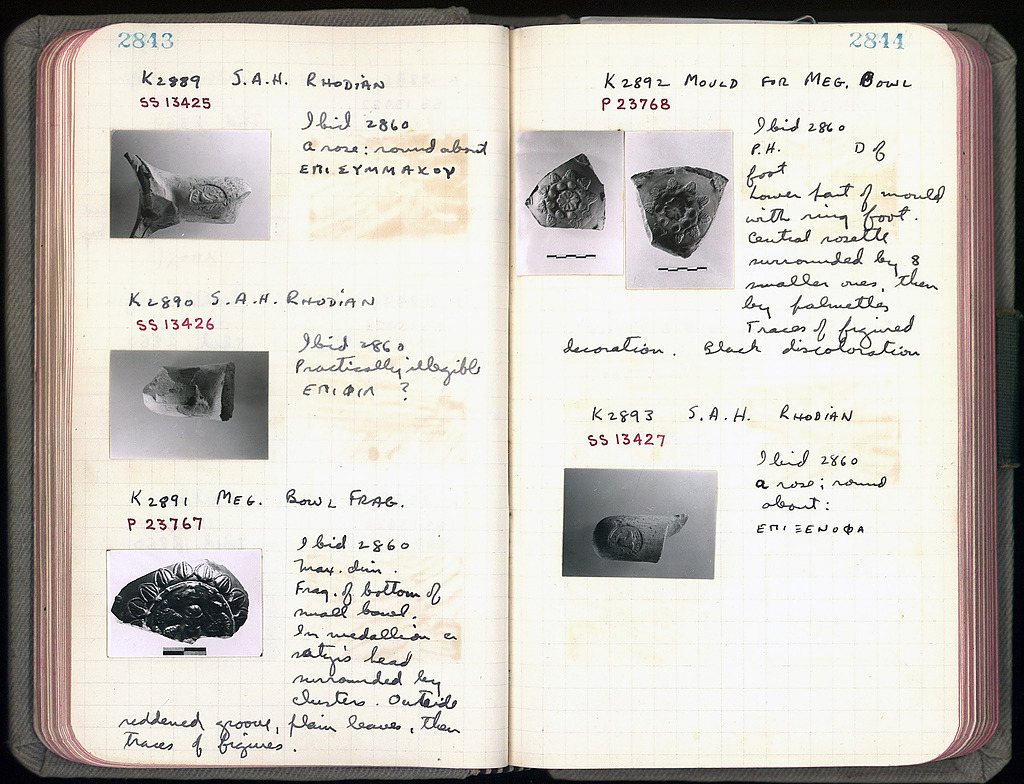 2843
K2889 S.A.H. RHODIAN
SS 13425
Ibid 2860
a rose: round about
ΕΠΙ ΣΥΜΜΑΧΟΥ
K2890 S.A.H. RHODIAN
SS 13426
Ibid 2860
Practically illegible
ΕΠΙΦΙΛ ?
K2891 MEG. BOWL FRAG.
P 23767
Ibid 2860
Max. dim.
Frag. of bottom of
small bowl.
In medallion a
satyr's head
surrounded by
clusters. Outside
reddened groove, plain leaves, then
traces of figures.
2844
K2892 MOULD FOR MEG. BOWL
P 23768
Ibid 2860
P.H. D of
foot
Lower part of mould
with ring foot.
Central rosette
surrounded by 8
smaller ones, then
by palmettes
Traces of figured
decoration. Black discoloration
K2893 S.A.H. RHODIAN
SS 13427
Ibid 2860
a rose; round
about:
ΕΠΙ ΞΕΝΟΦΑ